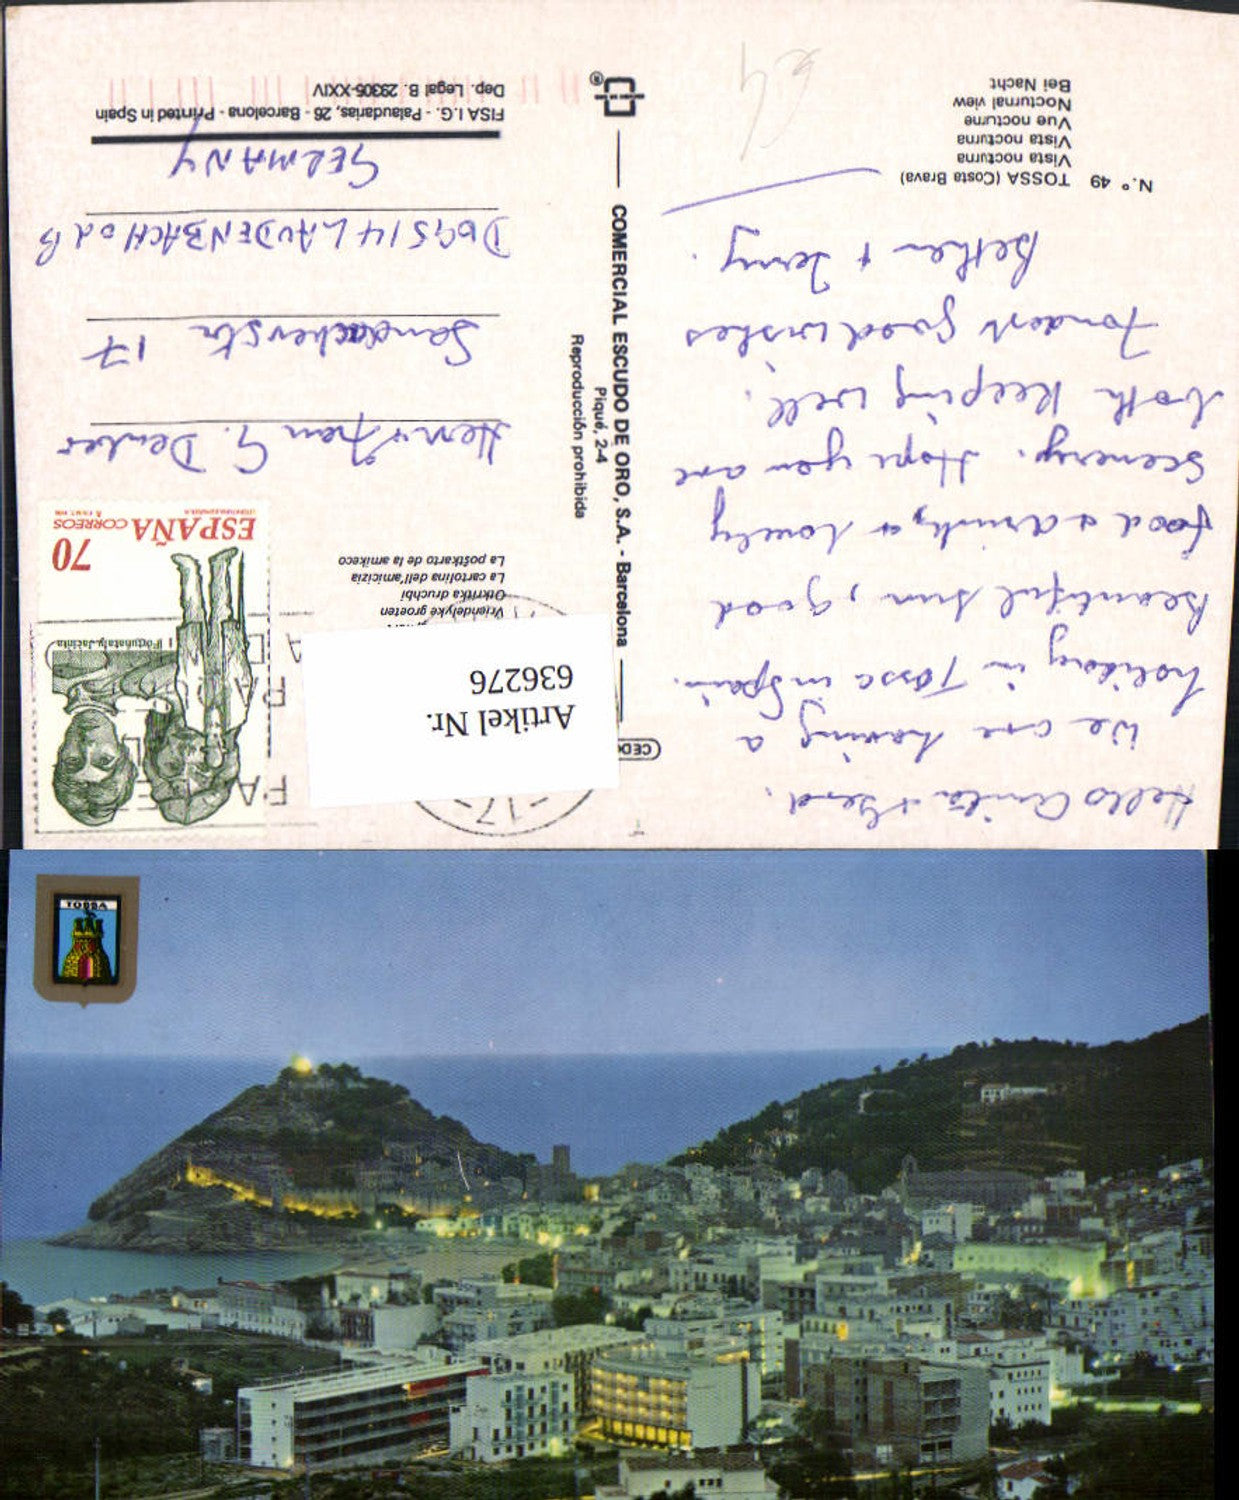 N.° 49 TOSSA (Costa Brava)
Vista nocturna
Vista nocturna
Vue nocturne
Nocturnal view
Bei Nacht
Hello Anita + Gerd.
We are having a
holiday in Tossa in Spain.
Beautiful sun, good
food & drink, & lovely
Scenery. Hope you are
both keeping well.
Fondest good wishes
CEDO
COMERCIAL ESCUDO DE ORO, S.A. - Barcelona
Piqué, 2-4
Reproducción prohibida
®
Artikel Nr.
636276
Vriendelyke groeten
Otkritka druchbi
La cartolina dell'amicizia
La poŝtkarto de la amikeco
Fortunata y Jacinta
ESPAÑA CORREOS
70
Herr + Frau G.
17
D69514 LAUDENBACH
GERMANY
FISA I.G. - Palaudarias, 26 - Barcelona - Printed in Spain
Dep. Legal B. 29305-XXIV
TOSSA